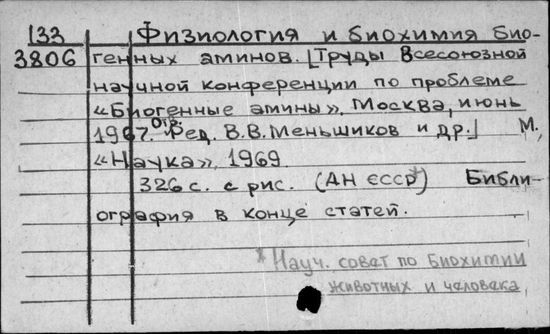 133 Физиология и биохимия био-
3806 генных аминов. [Труды Всесоюзной
научной конференции по проблеме
«Биогенные амины», Москва, июнь
1967. Отв. Ред. В.В. Меньшиков и др.] М.,
«Наука», 1969
326 с. с рис. (АН СССР*) Библи-
ография в конце статей.
* Науч. совет по биохимии
животных и человека